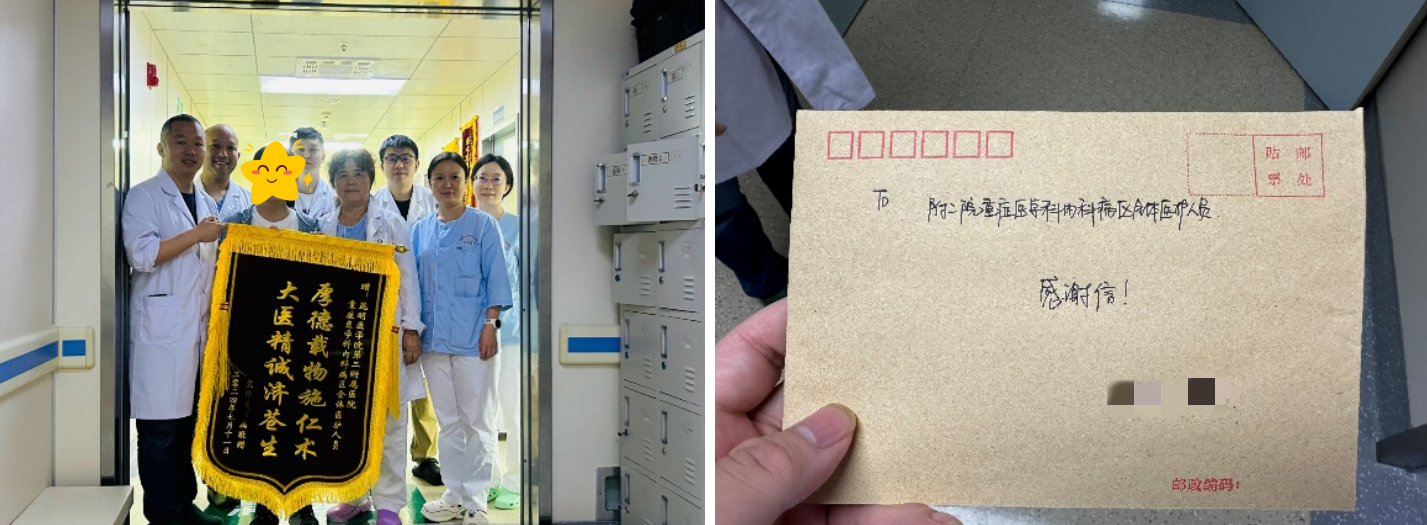 赠：昆明医学院第二附属医院
重症医学科内科病区全体医护人员
厚德载物施仁术
大医精诚济苍生
二零二四年七月十一日
贴邮
票处
To 附二院重症医学科内科病区全体医护人员
感谢信！
邮政编码：